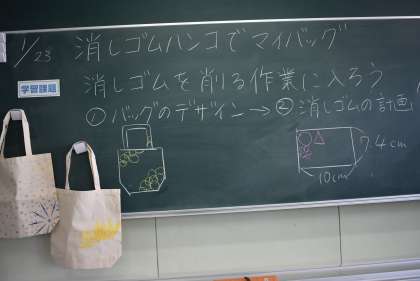 1/23 消しゴムハンコでマイバッグ
学習課題
消しゴムを削る作業に入ろう
①バッグのデザイン→②消しゴムの計画
7.4cm
10cm